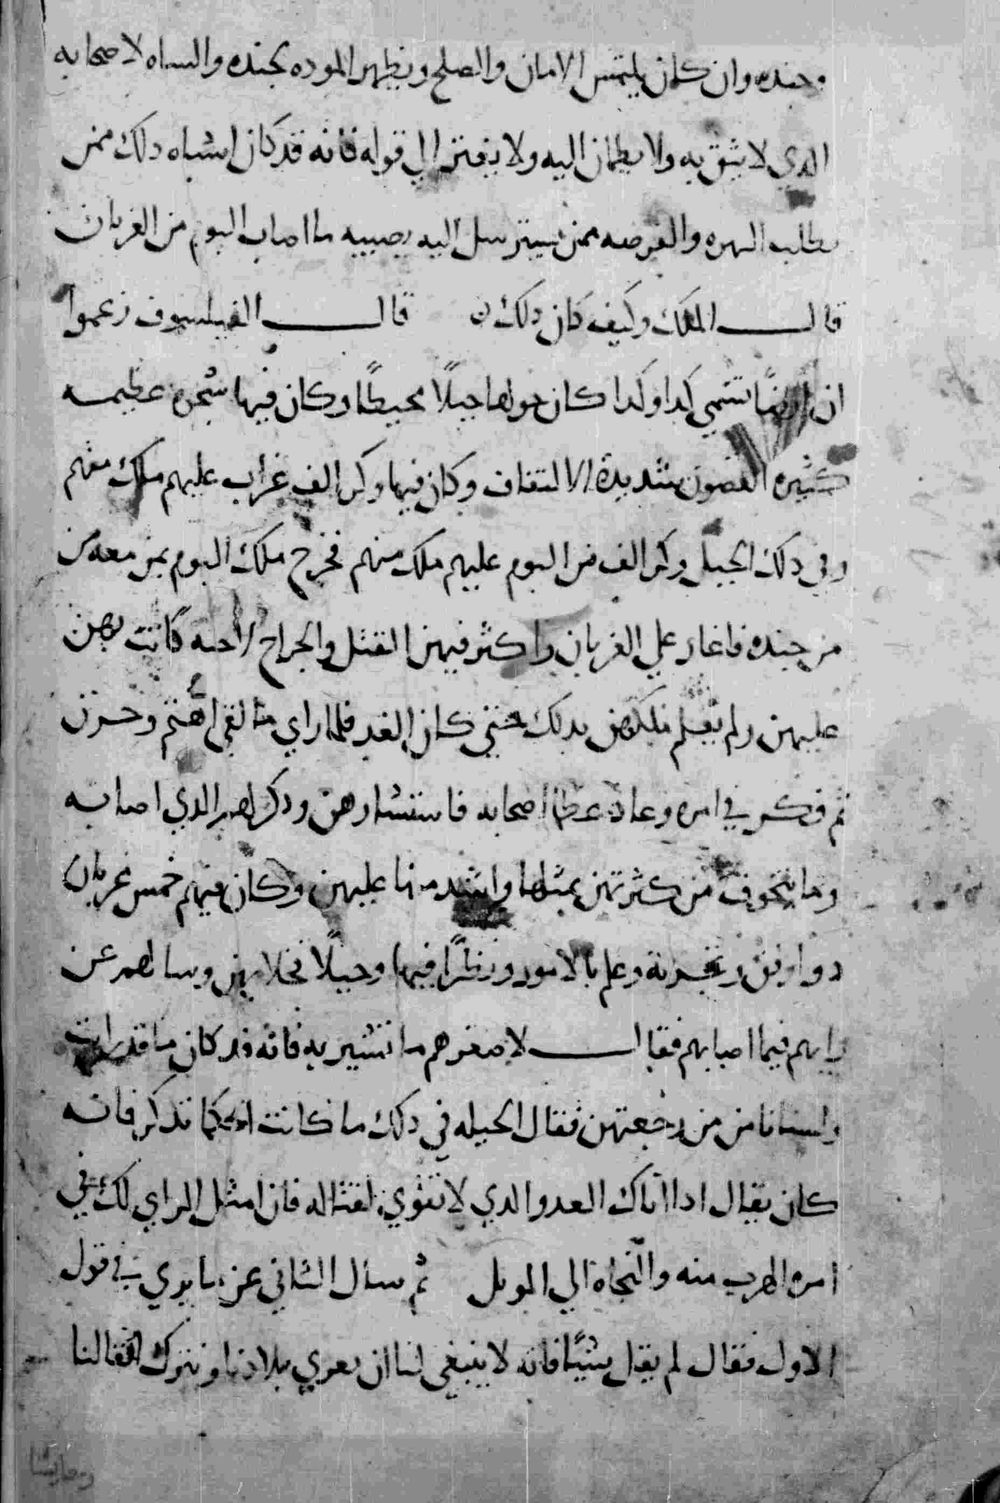 وجنده وان كان يلتمس الامان والصلح ويظهر الموده لجنده والساه لاصحابه
الدي لا يثق به ولا يطمان اليه ولا يغتر الي قوله فانه قد كان اشباه دلك ممن
يطلب النهره والفرصه ممن يسترسل اليه يصيبه ما اصاب البوم من الغربان
قال الملك وكيف كان دلك قال الفيلسوف زعموا
ان ارضا تسمي كدا وكدا كان حولها جبلا محيطا وكان فيها شجره عظيمه
كثيره الغصون شديدة الالتفاف وكان فيها وكر الف غراب عليهم ملك منهم
وفي دلك الجبل وكر الف من البوم عليهم ملك منهم فخرج ملك البوم بمن معه
من جنده فاغار علي الغربان واكثر فيهن القتل والجراح لاحنه كانت بهن
عليهن ولم يعلم ملكهن بدلك حتي كان الغد فلما راي ما لقي اهتم وحزن
ثم فكر في امره ودعا عظما اصحابه فاستشارهن ودكر لهم الدي اصابه
وما يتخوف من كثرتهن بمثلها واشد منها عليهن وكان فيهم خمس غربان
دوا رفق وتجربة وعلم بالامور ونظرا فيها وحيلا فخلا بهن وسالهم عن
رايهم فيما اصابهم فقال لاصغرهم ما تشير به فانه قد كان ما قد رايت
ولسنا نامن من رجعتهن فقال الحيله في دلك ما كانت الحكما تدكر فانه
كان يقال ادا اتاك العدو الدي لا تقوي لقتاله فان امثل الراي لك في
امره الهرب منه والنجاة الي الموىل ثم سال الثاني عن ما يري في قول
الاول فقال لم يقل شيا فانه لا ينبغي لنا ان نعري بلادنا ونترك اثقالنا